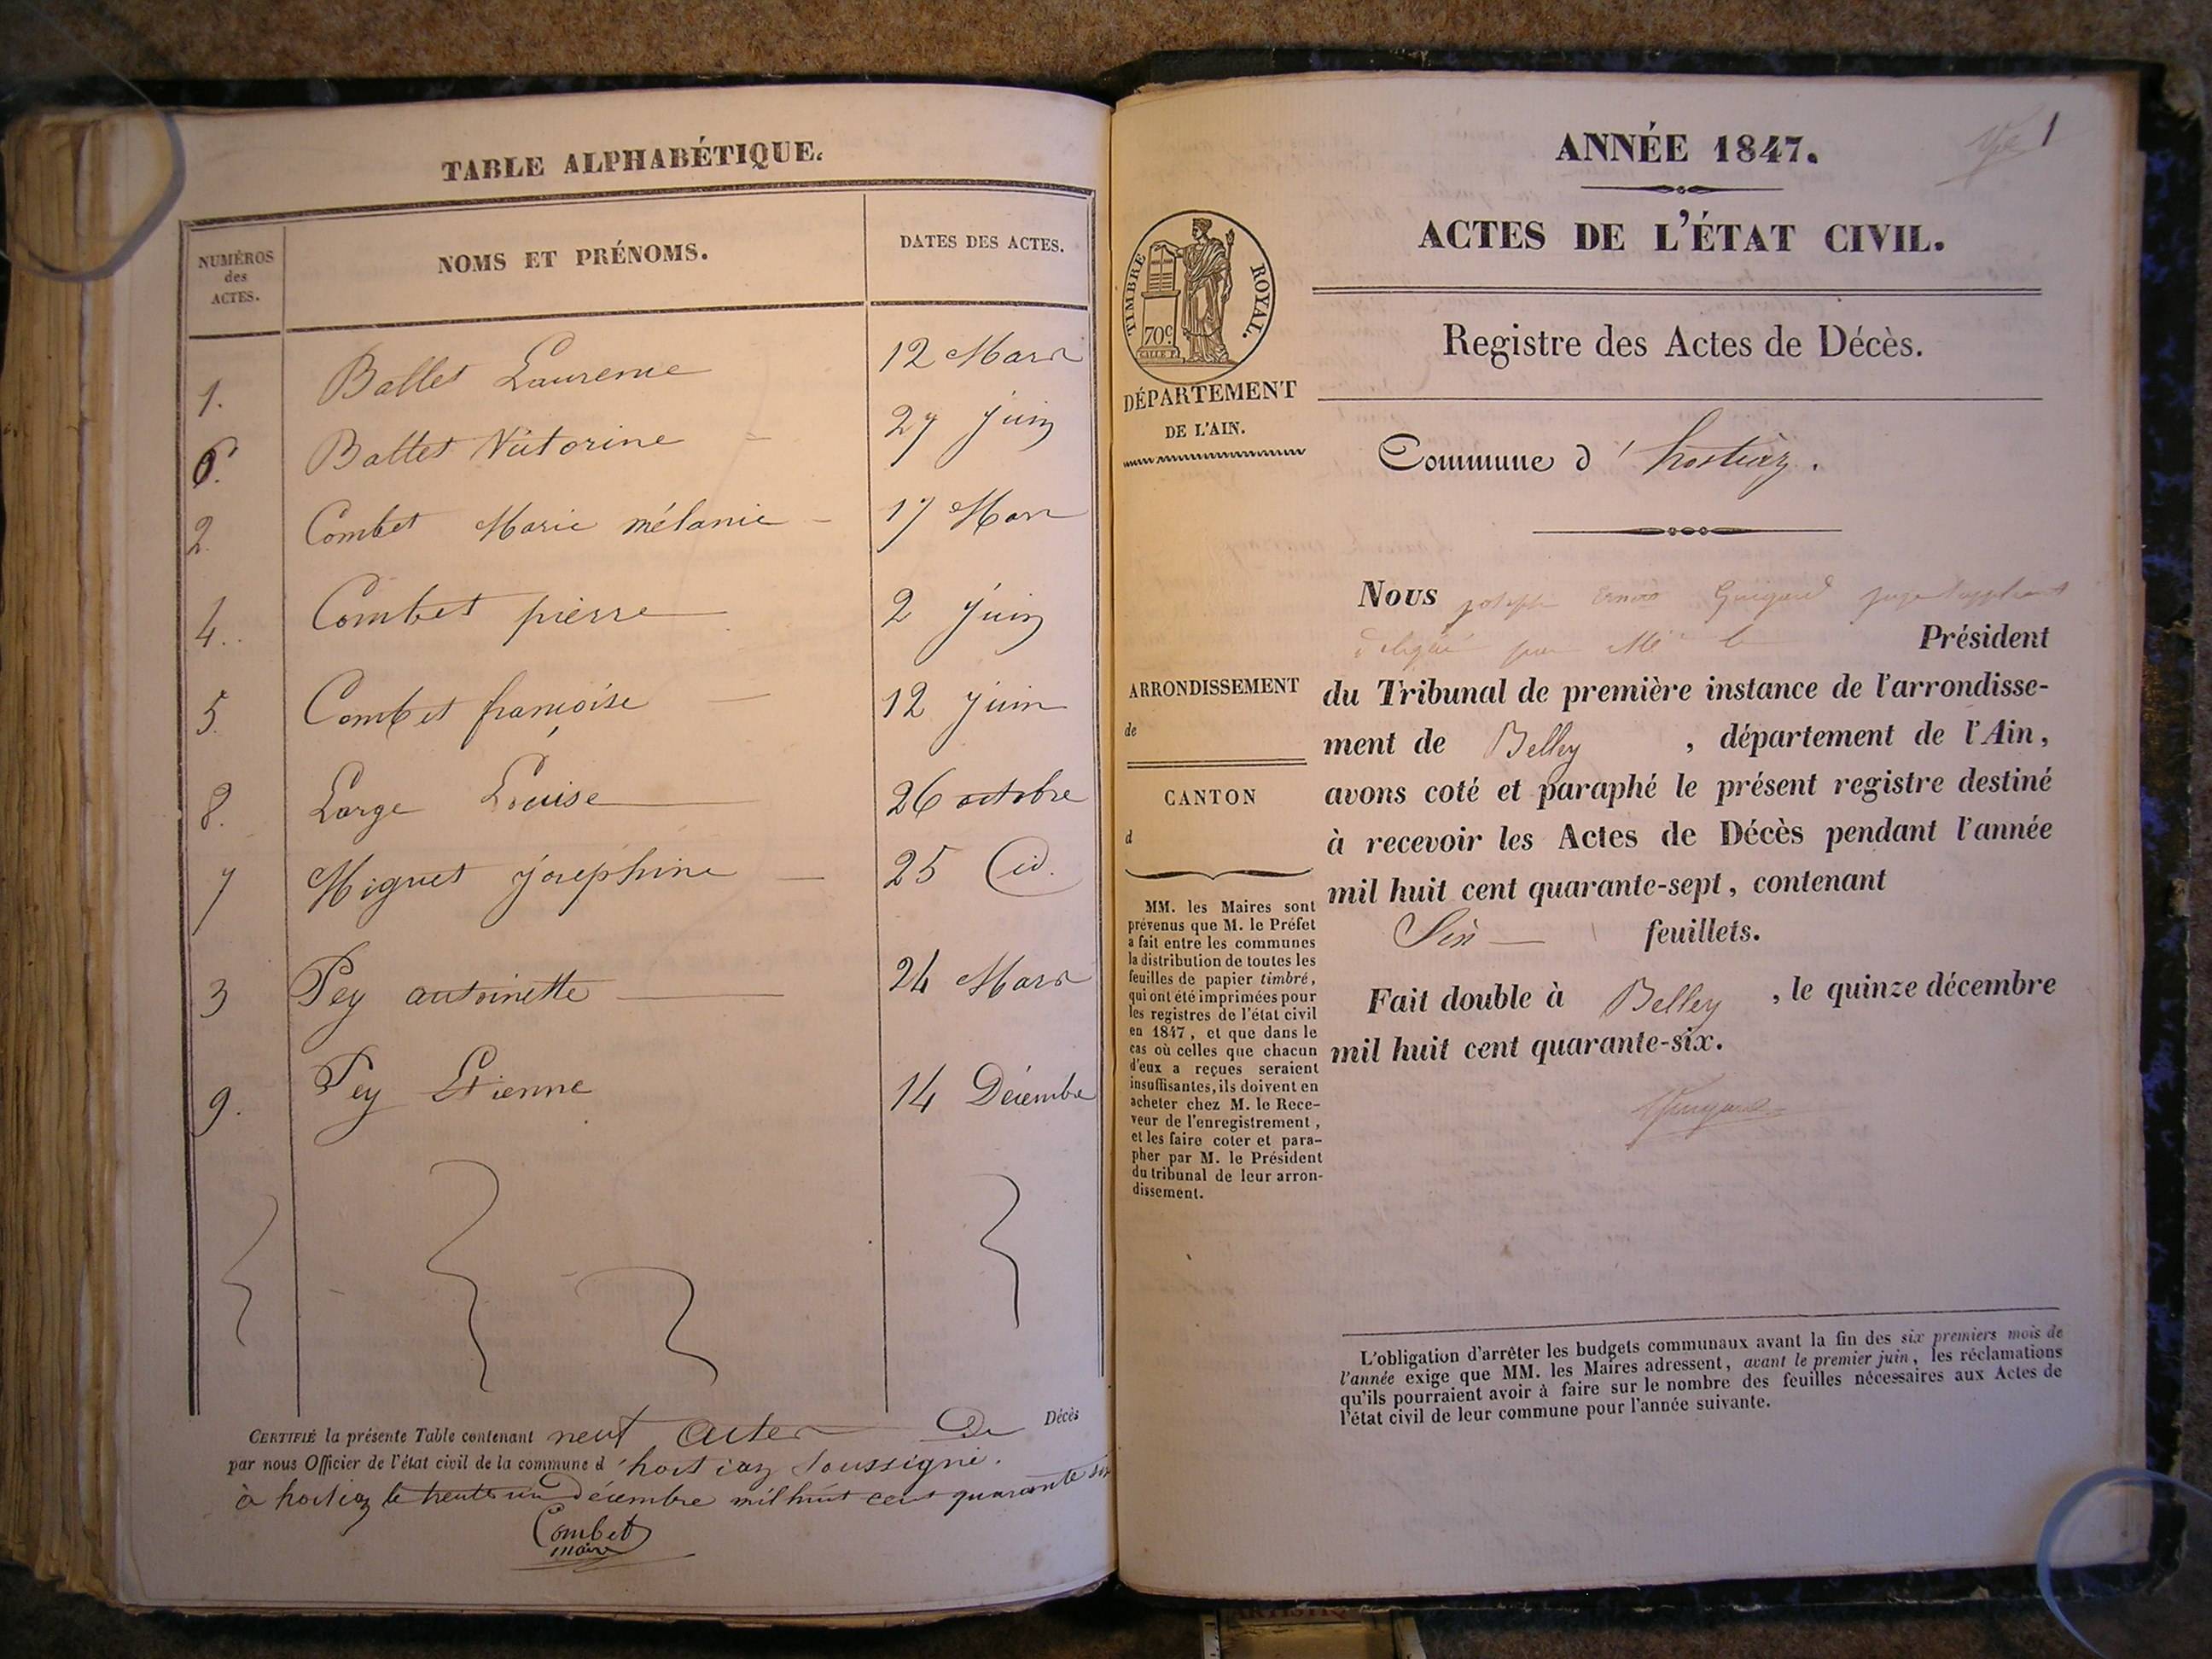 TABLE ALPHABÉTIQUE.
NUMÉROS
des
ACTES.
NOMS ET PRÉNOMS.
DATES DES ACTES.
1. Ballet Laurence 12 Mars
6. Ballet Victorine 27 juin
2. Combet Marie mélanie 17 Mars
4. Combet pierre 2 juin
5. Combet françoise 12 juin
8. Large Louise 26 octobre
7 Miguet josephine 25 id.
3 Pey antoinette 24 Mars
9. Pey Etienne 14 Décembre
CERTIFIÉ la présente Table contenant neuf actes De Décès
par nous Officier de l'état civil de la commune d'hostiaz soussigné.
à hostiaz le trente un Décembre mil huit cent quarante six
Combet
maire
1
ANNÉE 1847.
ACTES DE L'ÉTAT CIVIL.
TIMBRE ROYAL.
70c
Registre des Actes de Décès.
DÉPARTEMENT
DE L'AIN.
Commune d'hostiaz.
ARRONDISSEMENT
de
CANTON
d
MM. les Maires sont
prévenus que M. le Préfet
a fait entre les communes
la distribution de toutes les
feuilles de papier timbré,
qui ont été imprimées pour
les registres de l'état civil
en 1847, et que dans le
cas où celles que chacun
d'eux a reçues seraient
insuffisantes, ils doivent en
acheter chez M. le Rece-
veur de l'enregistrement,
et les faire coter et para-
pher par M. le Président
du tribunal de leur arron-
dissement.
Nous joseph Guigard juge suppléant
délégué par Mr le Président
du Tribunal de première instance de l'arrondisse-
ment de Belley, département de l'Ain,
avons coté et paraphé le présent registre destiné
à recevoir les Actes de Décès pendant l'année
mil huit cent quarante-sept, contenant
Six feuillets.
Fait double à Belley, le quinze décembre
mil huit cent quarante-six.
L'obligation d'arrêter les budgets communaux avant la fin des six premiers mois de
l'année exige que MM. les Maires adressent, avant le premier juin, les réclamations
qu'ils pourraient avoir à faire sur le nombre des feuilles nécessaires aux Actes de
l'état civil de leur commune pour l'année suivante.